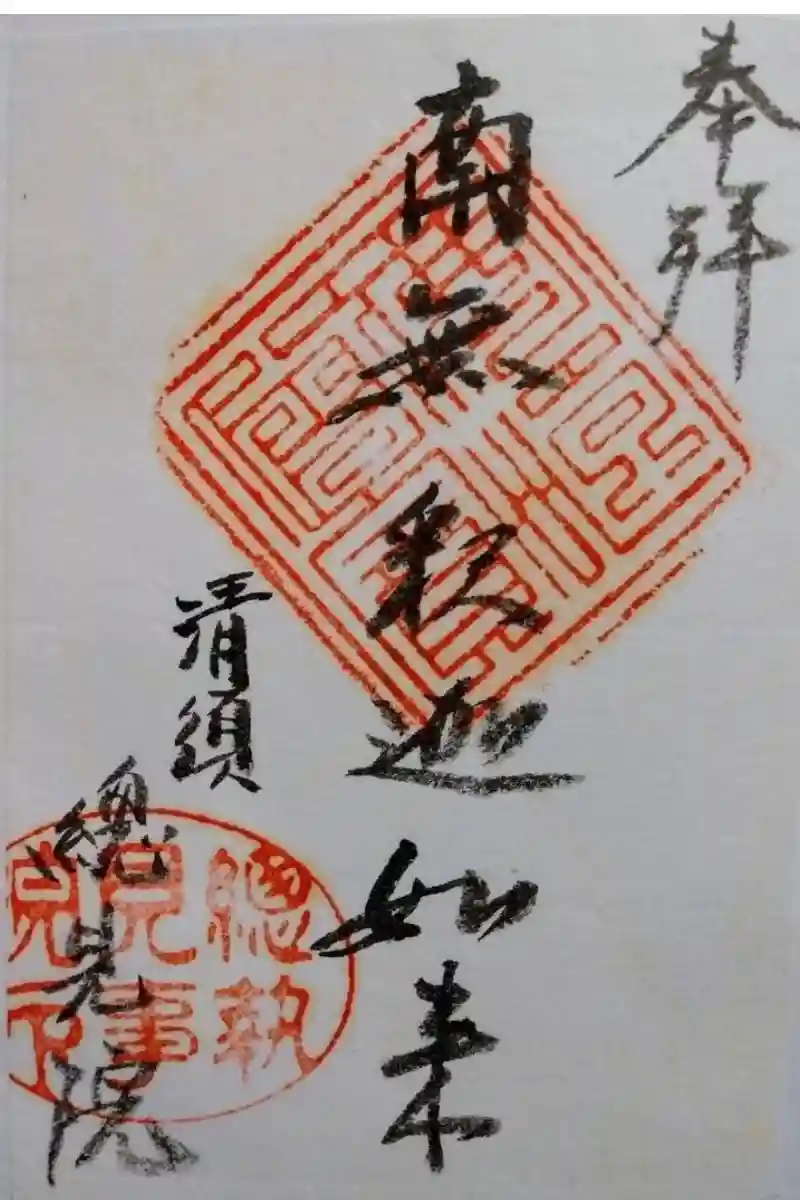 奉拝
南無釈迦如来
清須
總見院
總見
執事